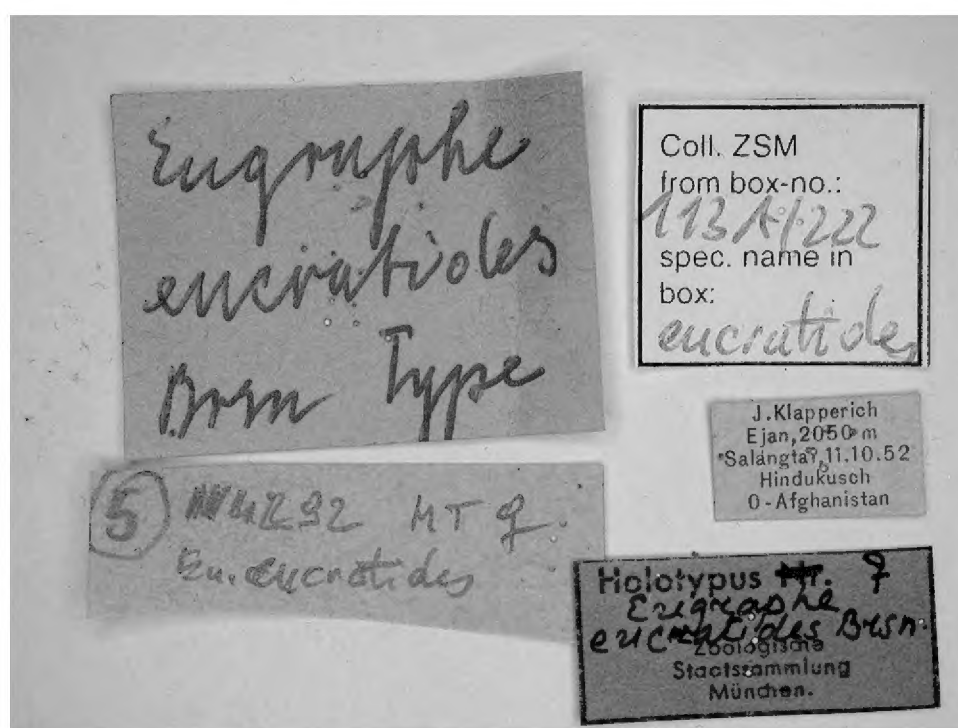 Eugraphe
eucratides
Brsn Type
Coll. ZSM
from box-no.:
spec. name in
box:
eucratides
J.Klapperich
Ejan,2050 m
11.10.52
Hindukusch
O-Afghanistan
5 HT ♀.
Eu. eucratides
Holotypus Nr. ♀
Eugraphe
eucratides Brsn.
Zoologische
Staatssammlung
München.